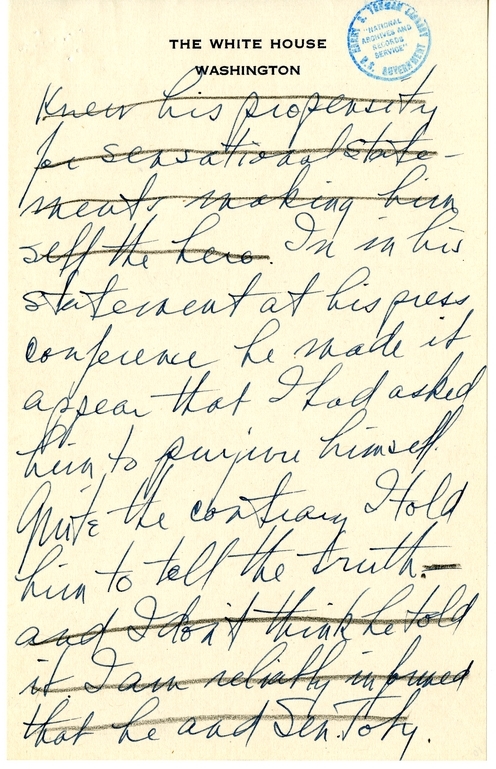 THE WHITE HOUSE
WASHINGTON
HARRY S. TRUMAN LIBRARY
"NATIONAL
ARCHIVES AND
RECORDS
SERVICE"
U.S. GOVERNMENT
Knew his propensity
for sensational state-
ments making him
self the hero. In in his
statement at his press
conference he made it
appear that I had asked
him to purjure himself.
Quite the contrary I told
him to tell the truth.
and I don't think he told
it I am reliably informed
that he and Sen. Toby.